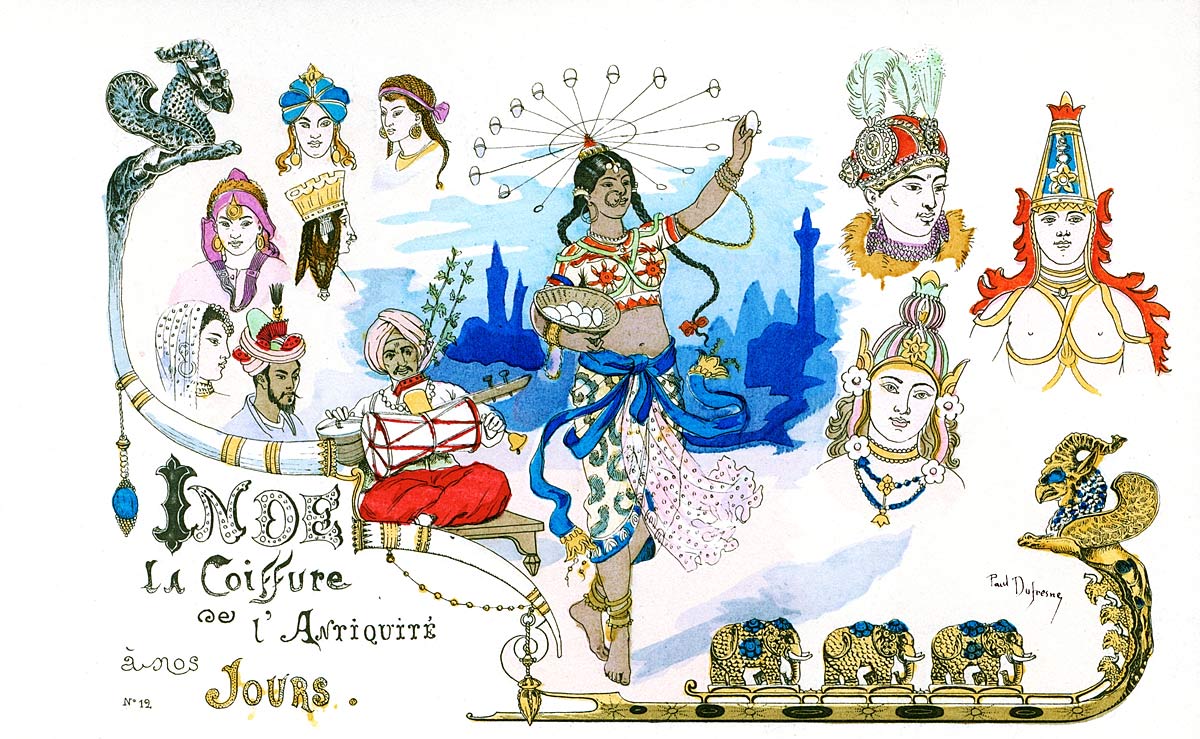 INDE
LA Coiffure
de
l'ANTIQUITÉ
à nos
JOURS.
N° 12
Paul Dufresne